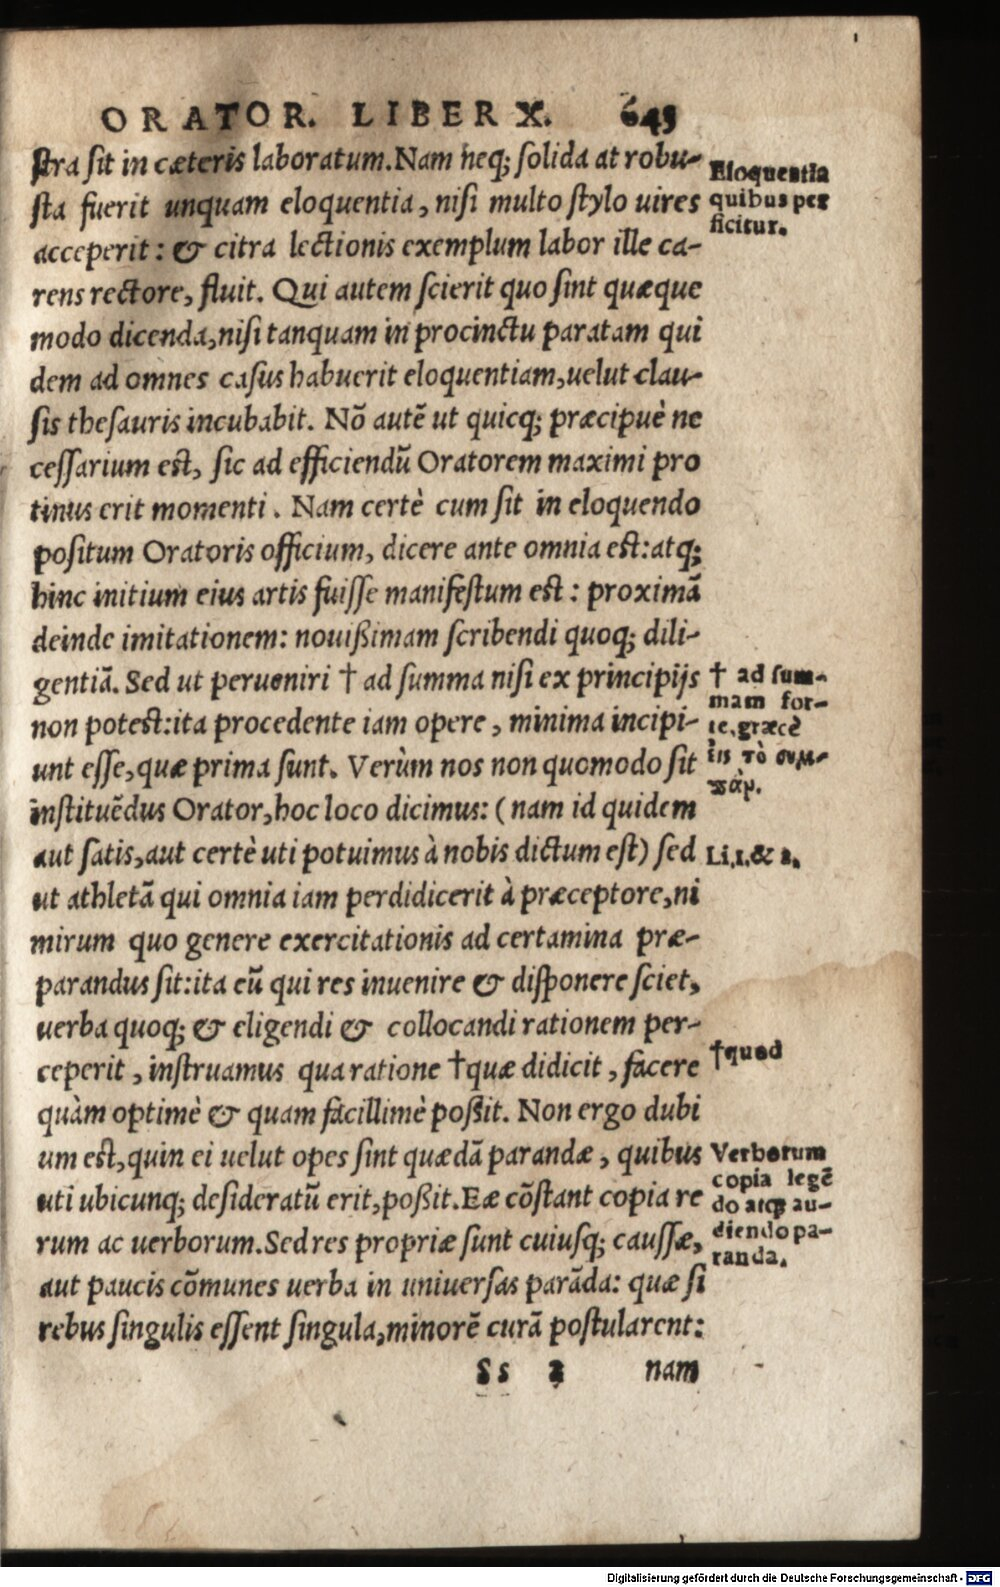 ORATOR. LIBER X. 643
stra sit in cæteris laboratum. Nam neq; solida at robu-
sta fuerit unquam eloquentia, nisi multo stylo uires
acceperit: & citra lectionis exemplum labor ille ca-
rens rectore, fluit. Qui autem scierit quo sint quæque
modo dicenda, nisi tanquam in procinctu paratam qui
dem ad omnes casus habuerit eloquentiam, uelut clau-
sis thesauris incubabit. Nõ autẽ ut quicq; præcipuè ne
cessarium est, sic ad efficiendũ Oratorem maximi pro
tinus erit momenti. Nam certè cum sit in eloquendo
positum Oratoris officium, dicere ante omnia est: atq;
hinc initium eius artis fuisse manifestum est: proximã
deinde imitationem: nouißimam scribendi quoq; dili-
gentiã. Sed ut perueniri † ad summa nisi ex principijs
non potest: ita procedente iam opere, minima incipi-
unt esse, quæ prima sunt. Verùm nos non quomodo sit
instituẽdus Orator, hoc loco dicimus: (nam id quidem
aut satis, aut certè uti potuimus à nobis dictum est) sed
ut athletã qui omnia iam perdidicerit à præceptore, ni
mirum quo genere exercitationis ad certamina præ-
parandus sit: ita eũ qui res inuenire & disponere sciet,
uerba quoq; & eligendi & collocandi rationem per-
ceperit, instruamus qua ratione † quæ didicit, facere
quàm optimè & quam facillimè poßit. Non ergo dubi
um est, quin ei uelut opes sint quædã parandæ, quibus
uti ubicunq; desideratũ erit, poßit. Eæ cõstant copia re
rum ac uerborum. Sed res propriæ sunt cuiusq; caussæ,
aut paucis cõmunes uerba in uniuersas parãda: quæ si
rebus singulis essent singula, minorẽ curã postularent:
Ss 2 nam
Eloquentia
quibus per
ficitur.
† ad sum-
mam for-
te. græcè
εἰς τὸ συμ-
πάν.
Li. 1. & 2.
† quod
Verborum
copia legẽ
do atq; au-
diendo pa-
randa.
Digitalisierung gefördert durch die Deutsche Forschungsgemeinschaft - DFG